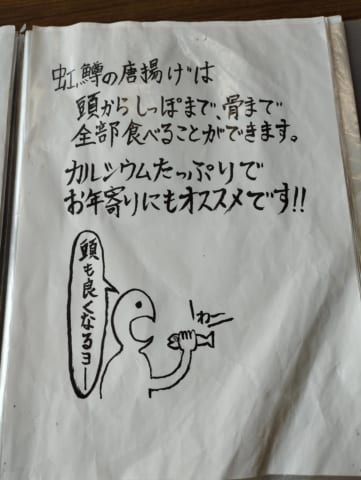 虹鱒の唐揚げは
頭からしっぽまで、骨まで
全部食べることができます。
カルシウムたっぷりで
お年寄りにもオススメです!!
頭も良くなるヨー
わー